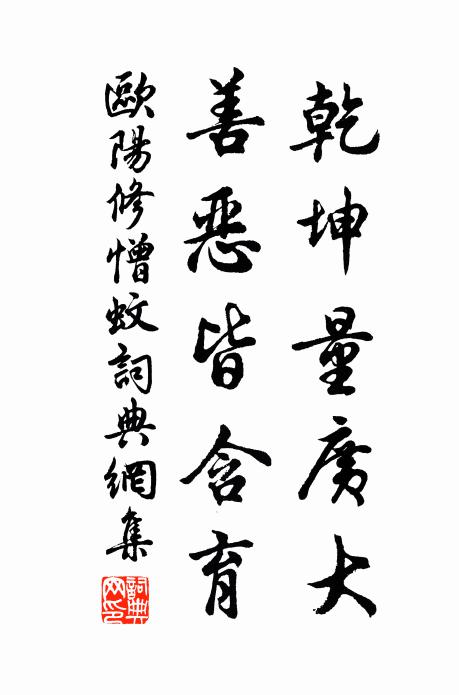 乾坤量廣大
善惡皆含育
歐陽修憎蚊詞典網集
詞典网印